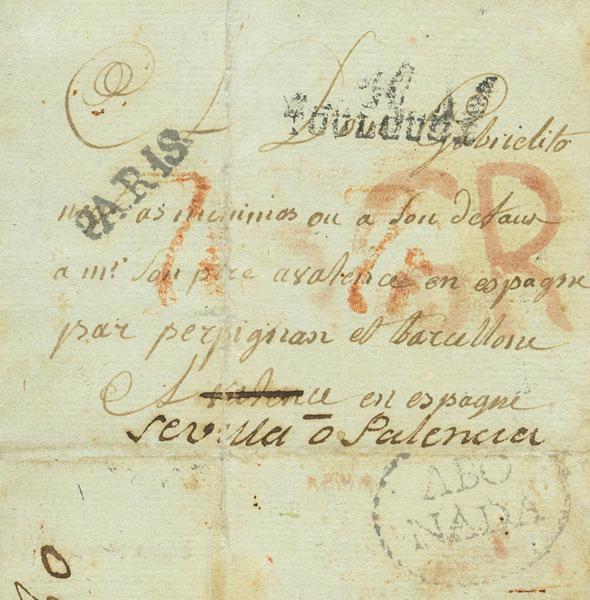 A D Gabrielito
30
TOULOUSE
PARIS
as meninios ou a Son defaut
7 R 7 R
a mr Son pere a valence en espagne
par perpignan et barcellone
A valence en espagne
Sevilla o Palencia
ABO
NADA